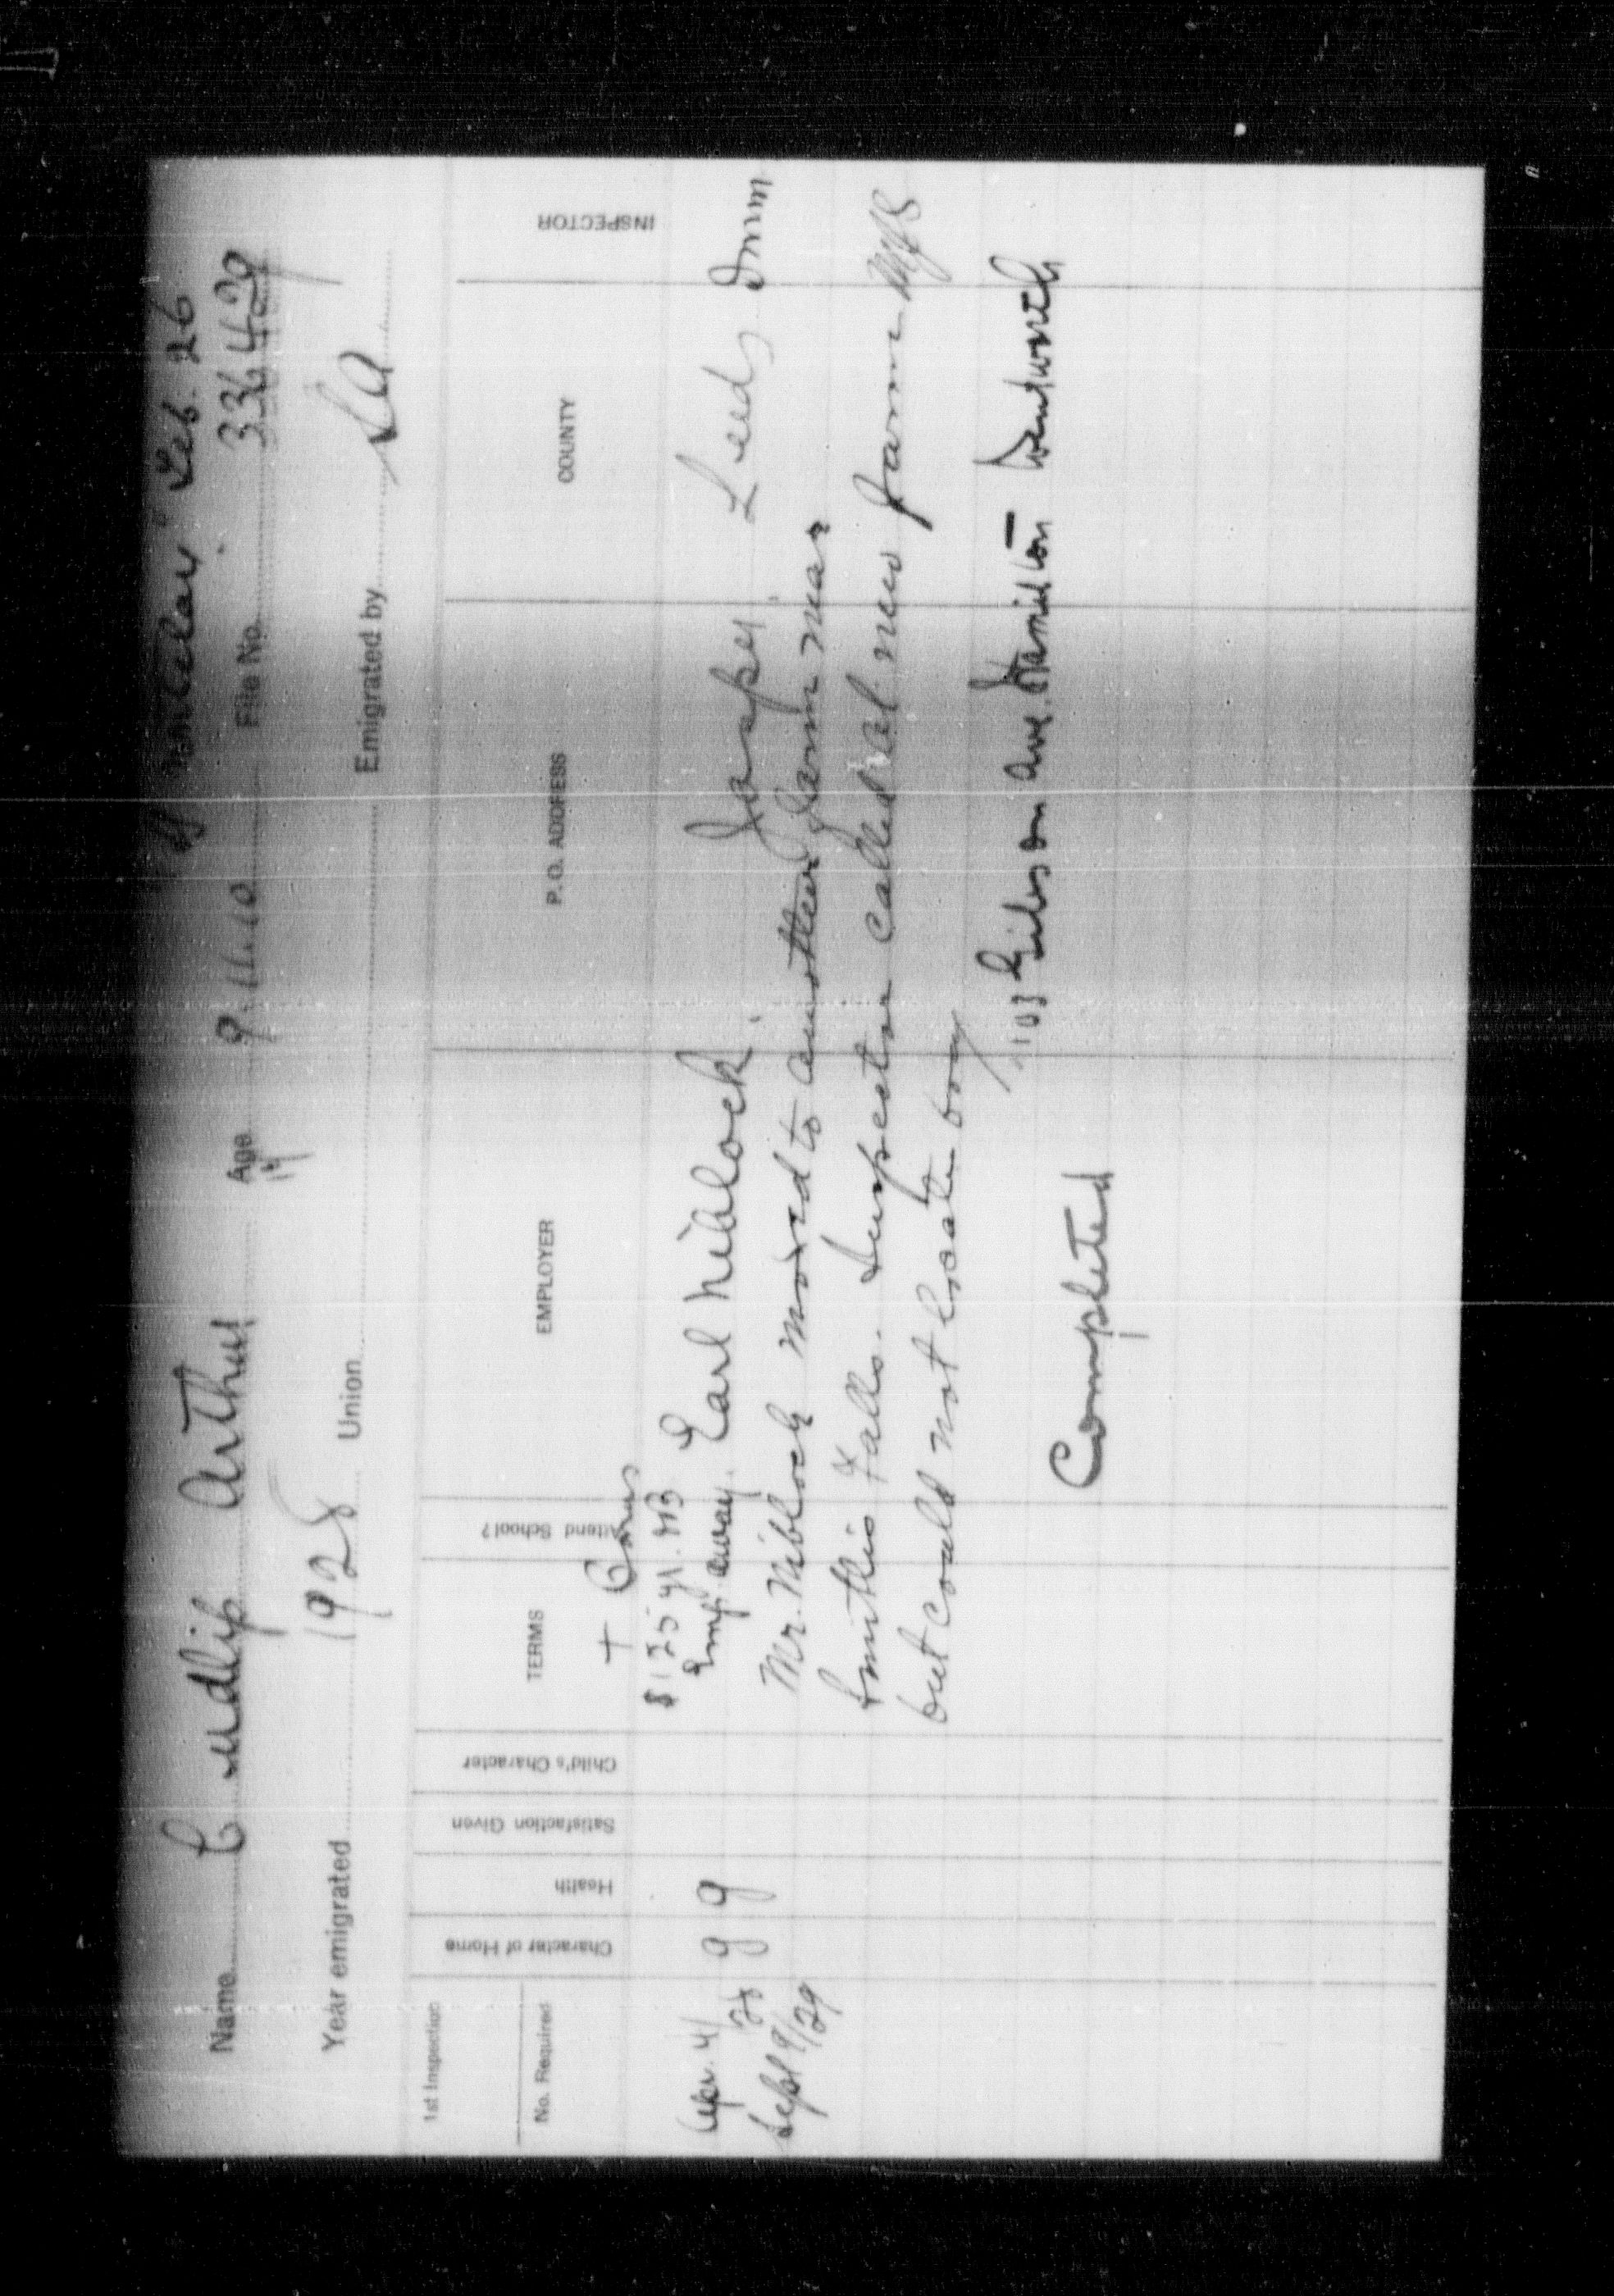 Feb. 26
Name Cudlip Arthur Age 9.11.10 File No. 336429
14
Year emigrated 1928 Union Emigrated by SA
1st Inspection
No. Required
Character of Home
Health
Satisfaction Given
Child's Character
TERMS
Attend School?
EMPLOYER
P. O. ADDRESS
COUNTY
INSPECTOR
+
$125 yr.
Apr. 4/28 g g Emp. away. Earl Niblock Jasper Leeds
Sept 9/29 Mr. Niblock moved to another farm near
Smiths Falls. Inspector called at new farm
but could not locate boy
103 Gibson Ave. Hamilton Wentworth
Completed